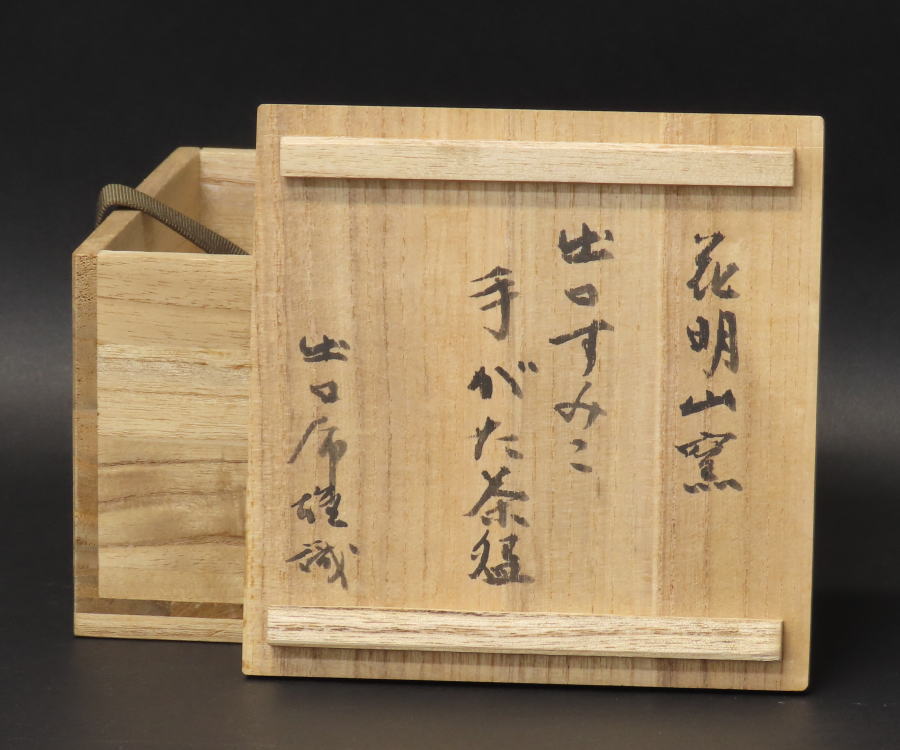 花明山窯
出口すみこ
手がた茶盌
出口虎雄識